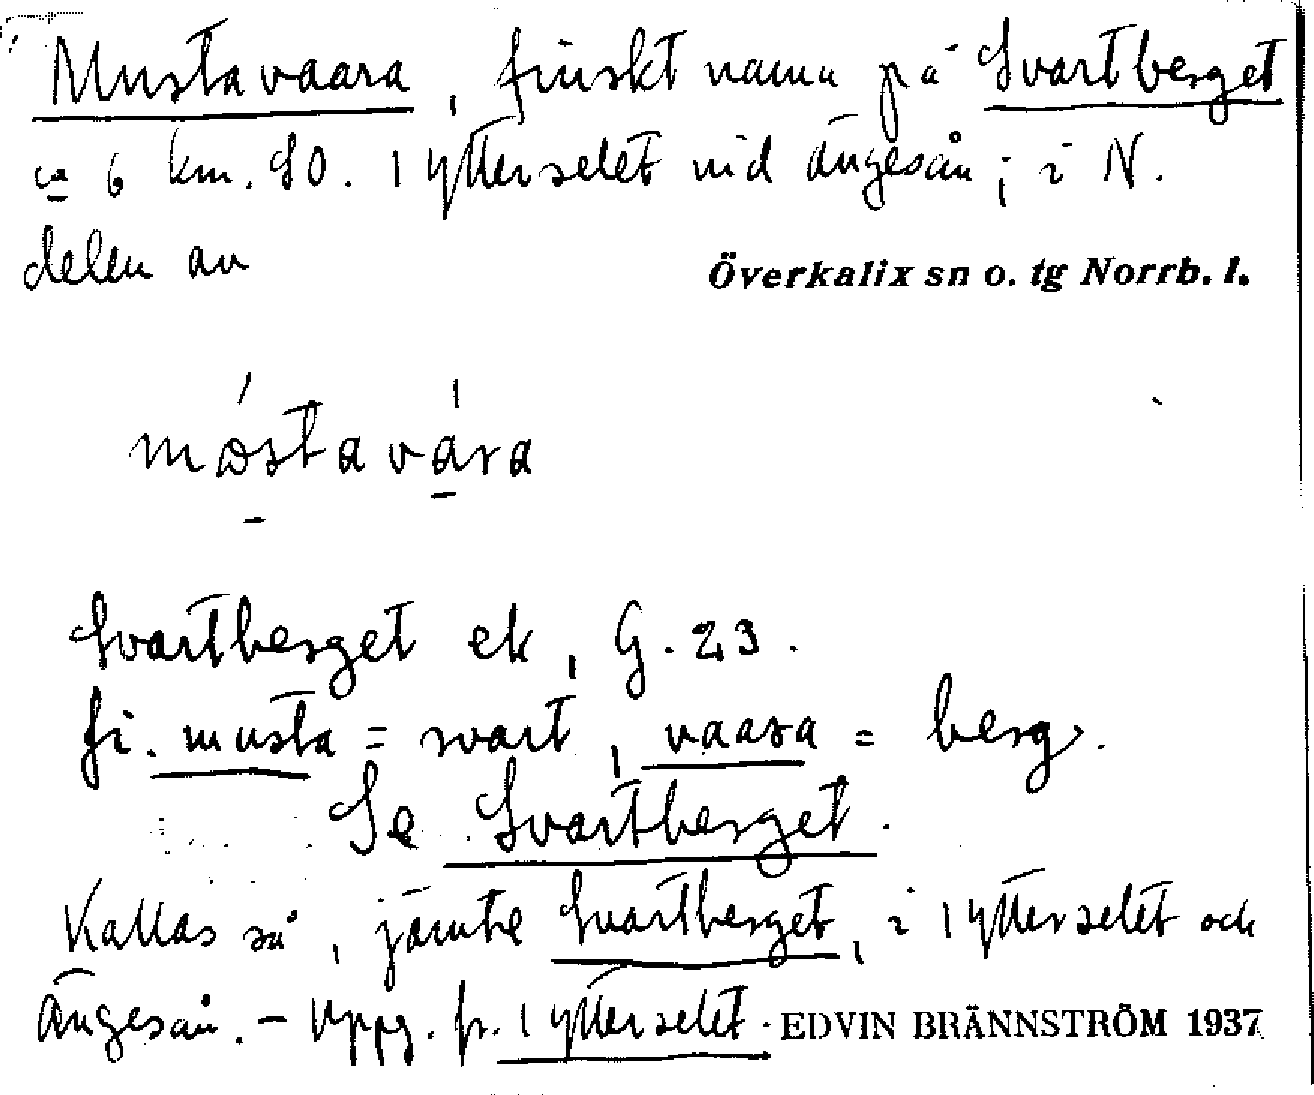 Mustavaara, finskt namn på Svartberget
ca 6 km. SO. 1 Ytterselet vid Ängesån; i N.
delen av Överkalix sn o. tg Norrb. l.
móstavára
Svartberget ek, G. 23.
fi. musta = svart, vaara = berg.
Se Svartberget.
Kallas så, jämte Svartberget, i 1 Ytterselet och
Ängesån. – Uppg. fr. 1 Ytterselet. EDVIN BRÄNNSTRÖM 1937